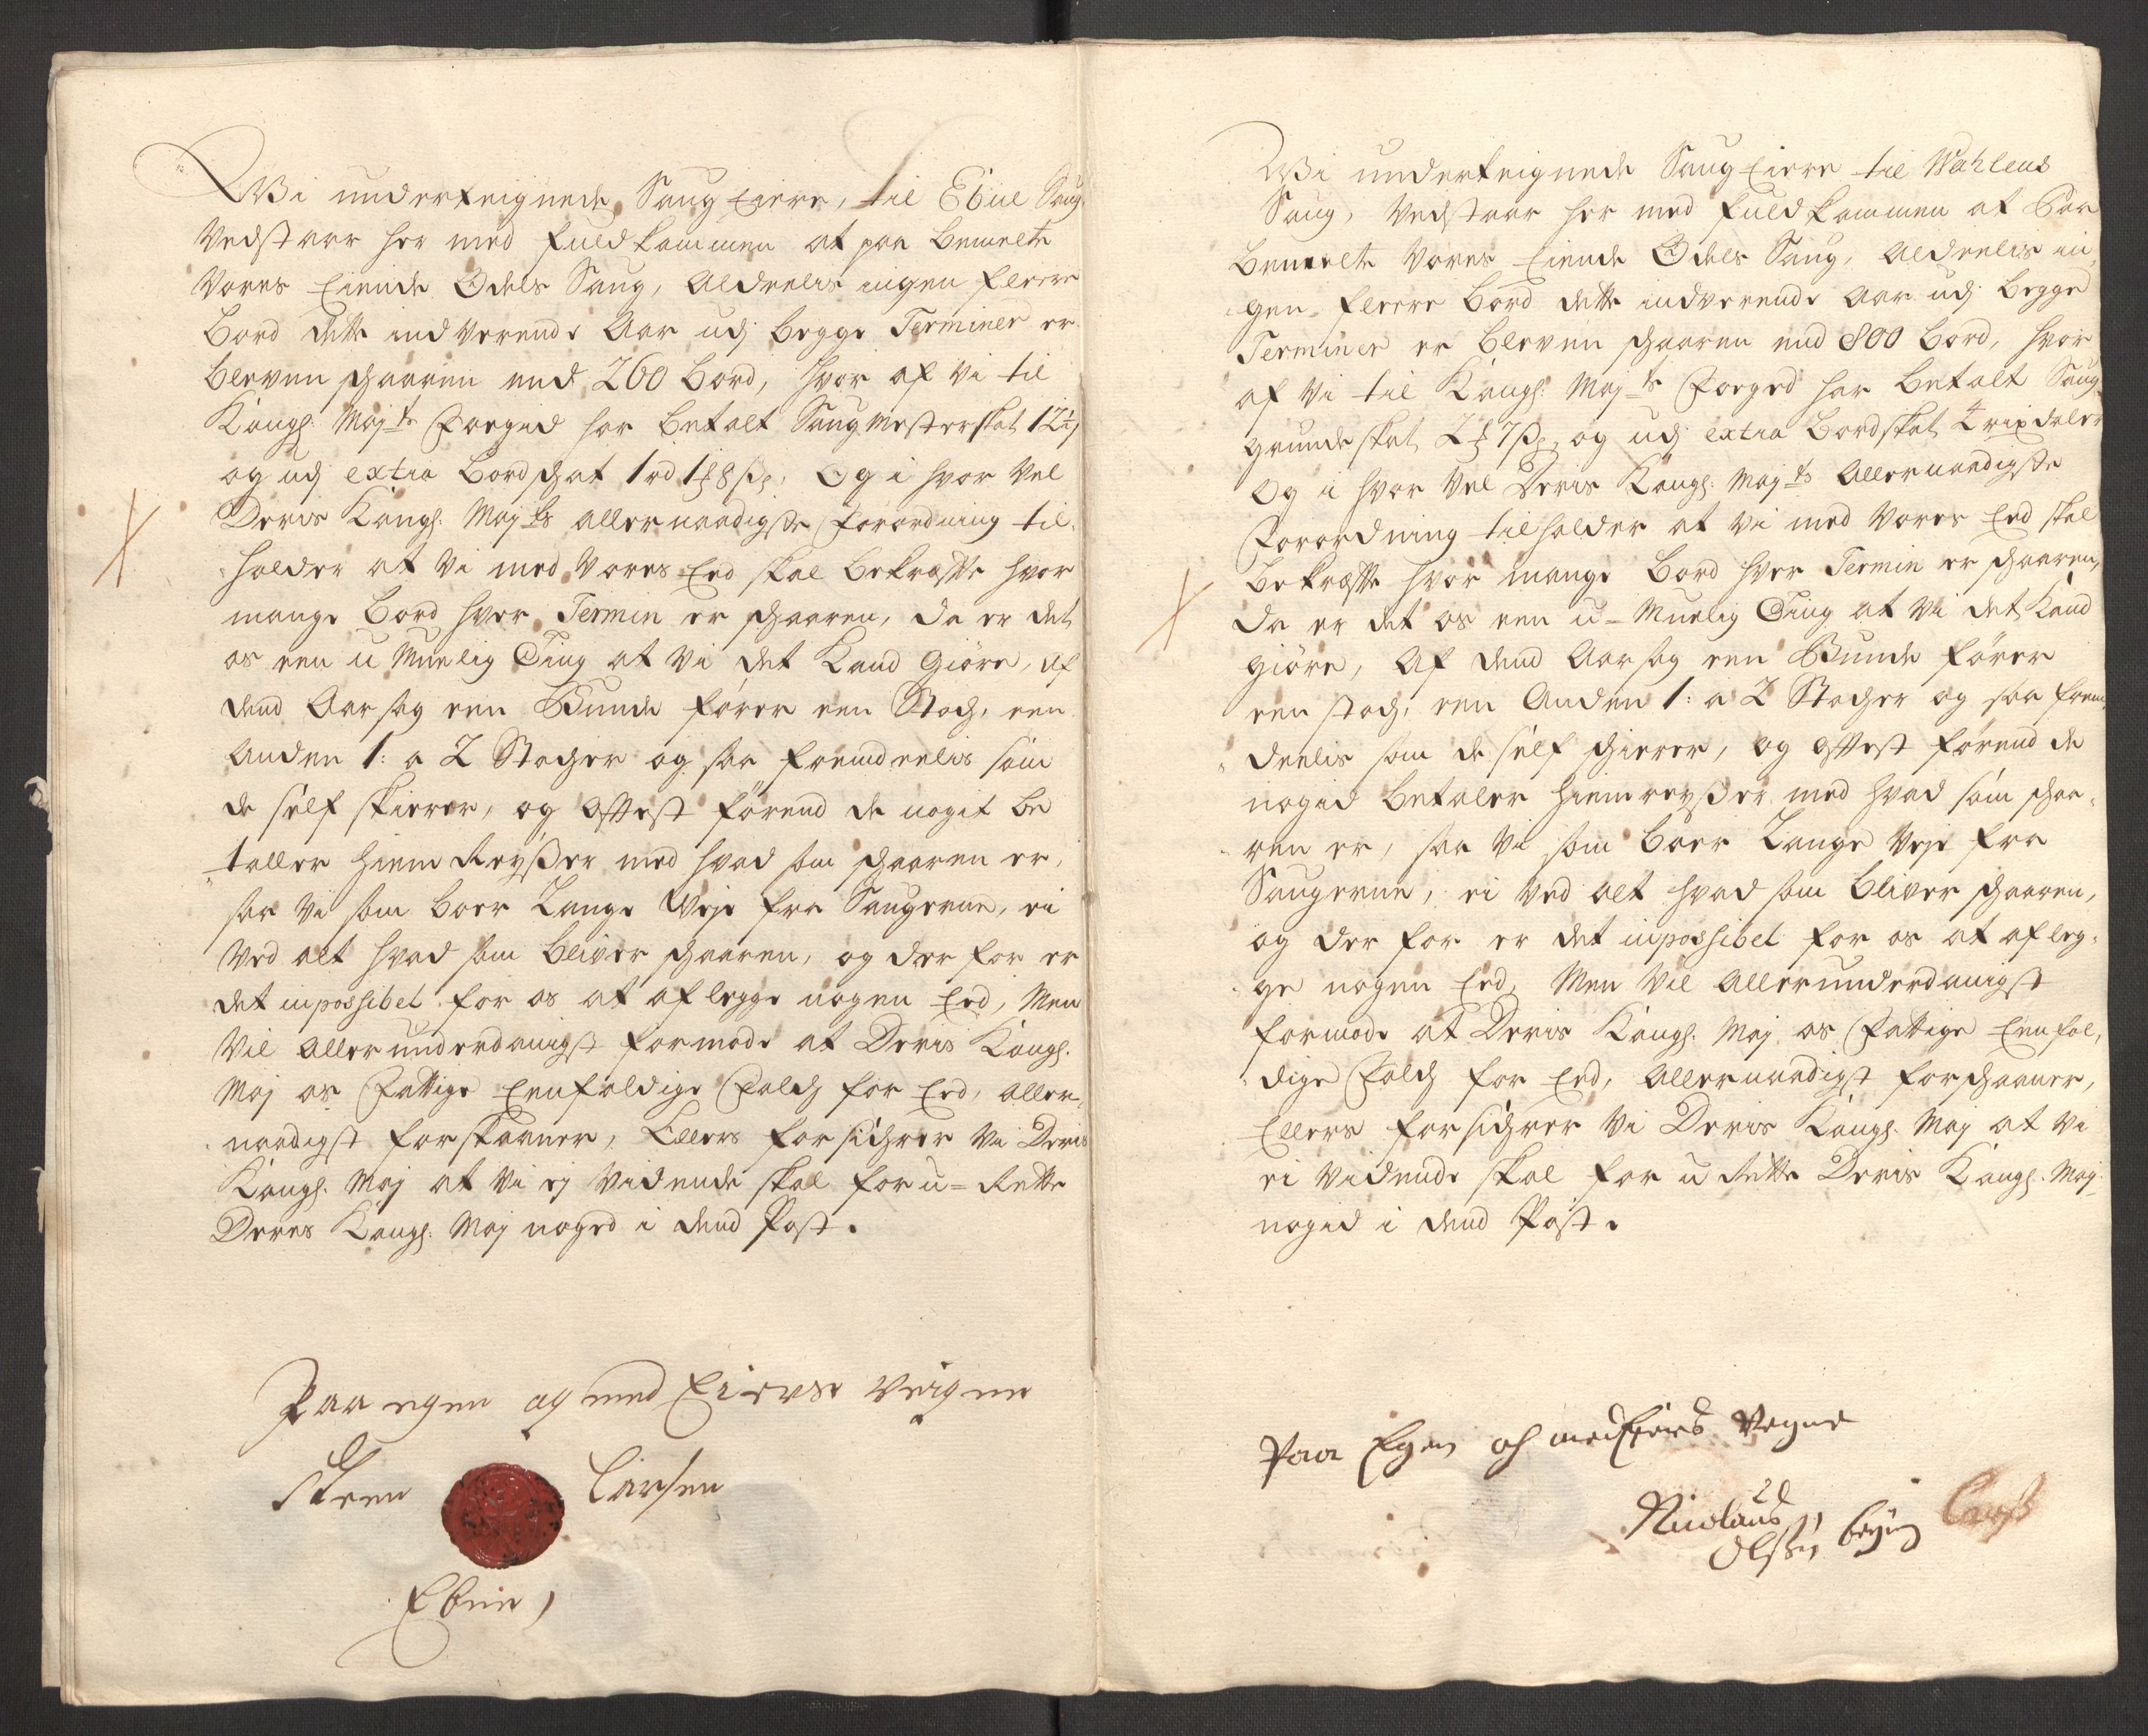 Wi underteignede Saug Eiere, til Ebue Saug
Vedstaar her med fuldkommen at paa bemelte
Vores Eiende Odels Saug, Aldeelis ingen fleere
Bord dette indverende Aar udj begge Terminer er
bleven schaaren end 260 bord, hvor af vi til
Kongl: Mayts Foegid har betalt Saugmesterskat
og udj extra bordschat 1 rd 1 8 Og i hvor vel
Deris Kongl: Mayts allernaadigste Forordning til-
holder at vi med Vores Eed skal bekræffte hvor
mange bord hver Termin er schaaren, da er det
os een u Muelig Ting at vi det Kand Giöre, af
dend Aarsag een Bunde förer een Stoch, een
Anden 1: a 2 Stocher og saa fremdeelis som
de self skierer, og offtest förend de noget be
taller hiem Reyßer med hvad som schaaren er,
saa vi som boer Lange Veje fra Saugerne, ei
Ved alt hvad som bliver schaaren, og der for er
det inpossibel for os at aflegge nogen Eed, Men
Vil Allerunderdanigst formode at Deris Kongl:
May os Fattige Eenfoldige Folch for Eed, aller-
naadigst forskaaner, Ellers forsichrer vi Deris
Kongl: May at vi ej Vidende skal for u-Rette
Deres Kongl: May noged i dend Post.
Paa egen og med Eierse veigne
Steen Larsen
Ebue
Wi underteignede Saug Eiere til Wahlens
Saug, Vedstaar her med fuldkommen at Paa
bemelte Vores Eiende Odels Saug, Aldeelis in
gen fleere bord dette indverende Aar udj begge
Terminer er bleven schaaren end 800 bord, hvor
af vi til Kongl: Mayts Foeged har betalt Saug
grundeskat 2 7 og udj extra bordskat 4 rixdaler
Og i hvor vel Deris Kongl: Mayts Allernaadigste
Forordning tilholder at vi med Vores Eed skal
bekræffte hvor mange bord hver Termin er schaaren,
da er det os een u-Muelig Ting at vi det Kand
giöre, Af dend Aarsag een Bunde förer
een stoch, een Anden 1: a 2 Stocher og saa frem
deelis som de self schierer, og offtest förend de
nogid betaler hiemreyßer med hvad som schaa-
ren er, saa vi som boer Lange Veje fra
Saugerne, ei ved alt hvad som bliver schaaren,
og der for er det inpossibel for os at afleg-
ge nogen Eed, Men vil Allerunderdanigst
formode at Deris Kongl: May os Fattige Eenfol-
dige Folch for Eed, Allernaadigst forschaaner,
Ellers forsichrer vi Deris Kongl: May at vi
ei vidende skal for u Rette Deris Kongl: May:
nogid i dend Post.
Paa Egen och medEieris Vegne
Nicolaus
Olssen